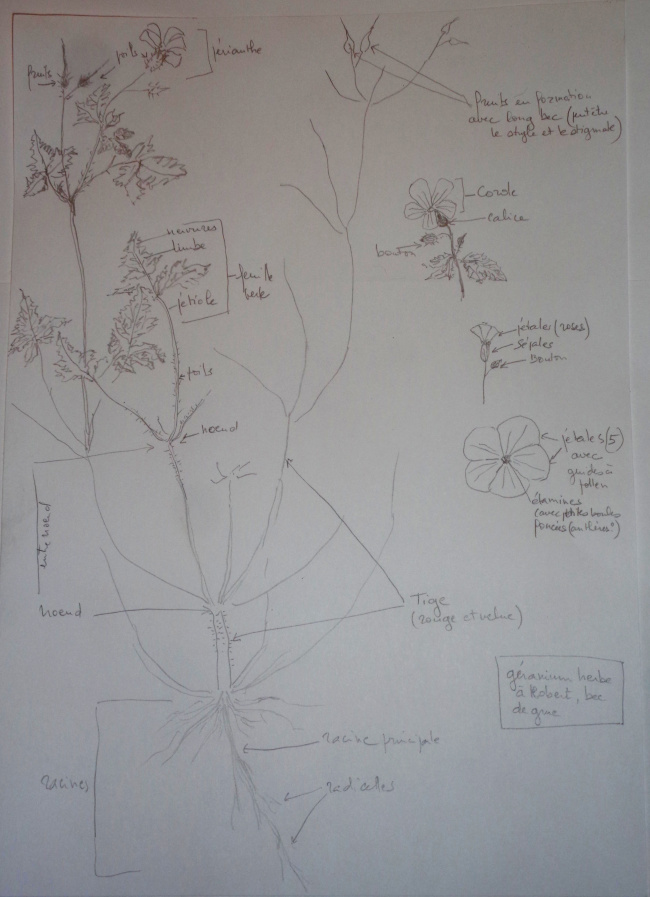 poils
périanthe
fruits
fruits en formation
avec long bec (peut être
le style et le stigmate)
Corolle
calice
bouton
nervures
limbe
feuille
verte
pétiole
pétales (roses)
Sépales
Bouton
poils
noeud
pétales (5)
avec
guides à
pollen
étamines
(avec petites boules
foncées (anthères?)
entre noeud
noeud
Tige
(rouge et velue)
géranium herbe
à Robert, bec
de grue
racine principale
Racines
radicelles